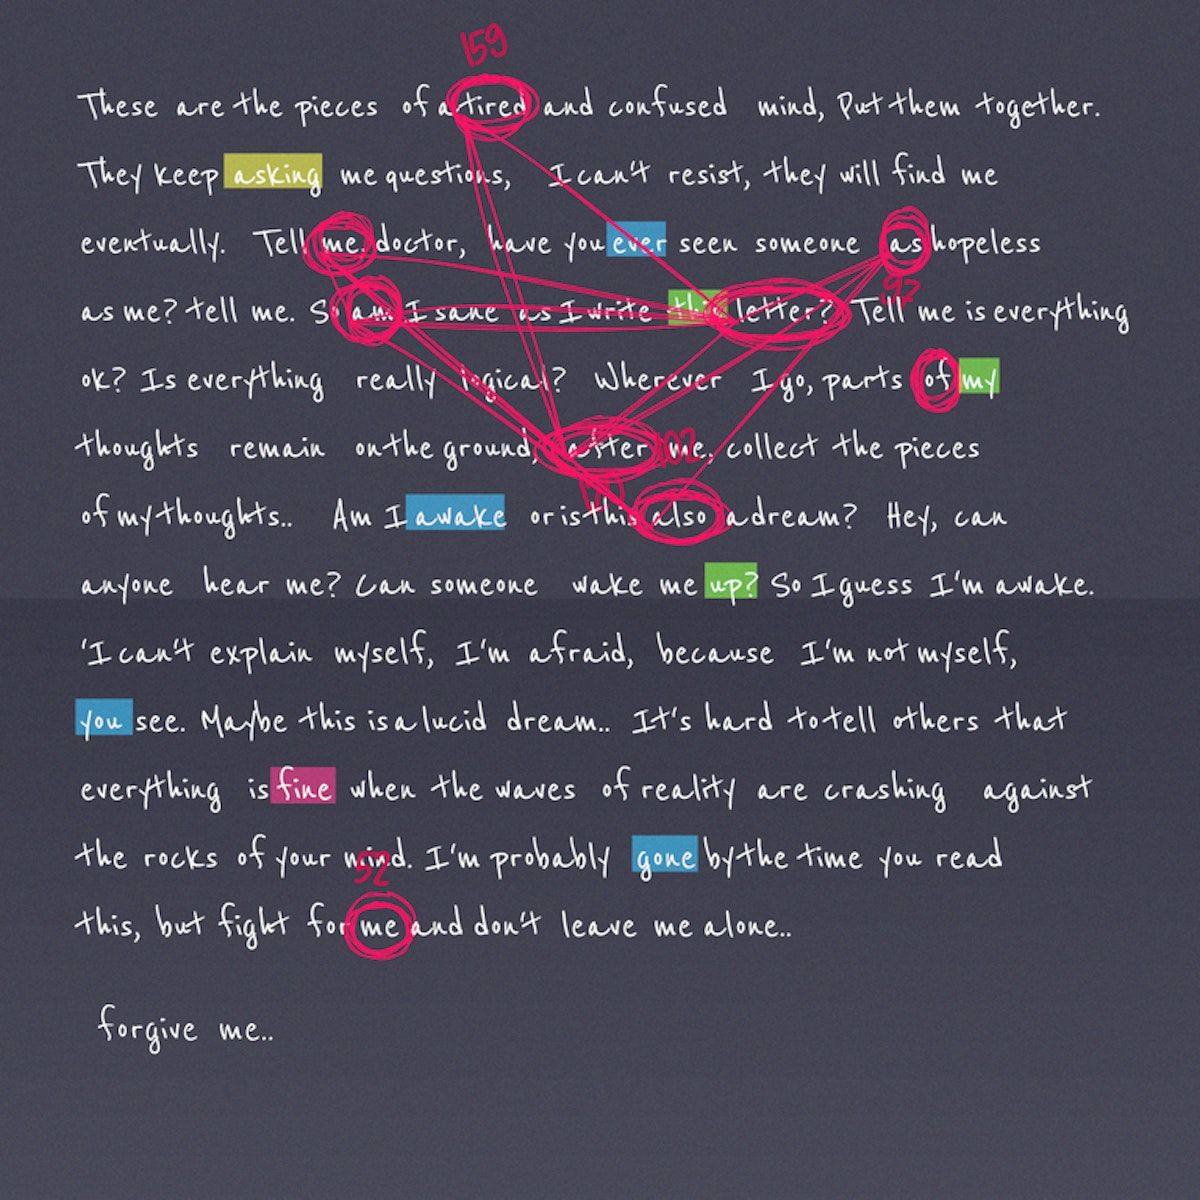 159
These are the pieces of a tired and confused mind, Put them together.
They keep asking me questions, I can't resist, they will find me
eventually. Tell me doctor, have you ever seen someone as hopeless
92
as me? tell me. So am I sane as I write this letter? Tell me is everything
ok? Is everything really logical? Wherever I go, parts of my
thoughts remain on the ground, after me, collect the pieces
102
of my thoughts.. Am I awake or is this also a dream? Hey, can
anyone hear me? Can someone wake me up? So I guess I'm awake.
'I can't explain myself, I'm afraid, because I'm not myself,
you see. Maybe this is a lucid dream.. It's hard to tell others that
everything is fine when the waves of reality are crashing against
the rocks of your mind. I'm probably gone by the time you read
52
this, but fight for me and don't leave me alone..
forgive me..